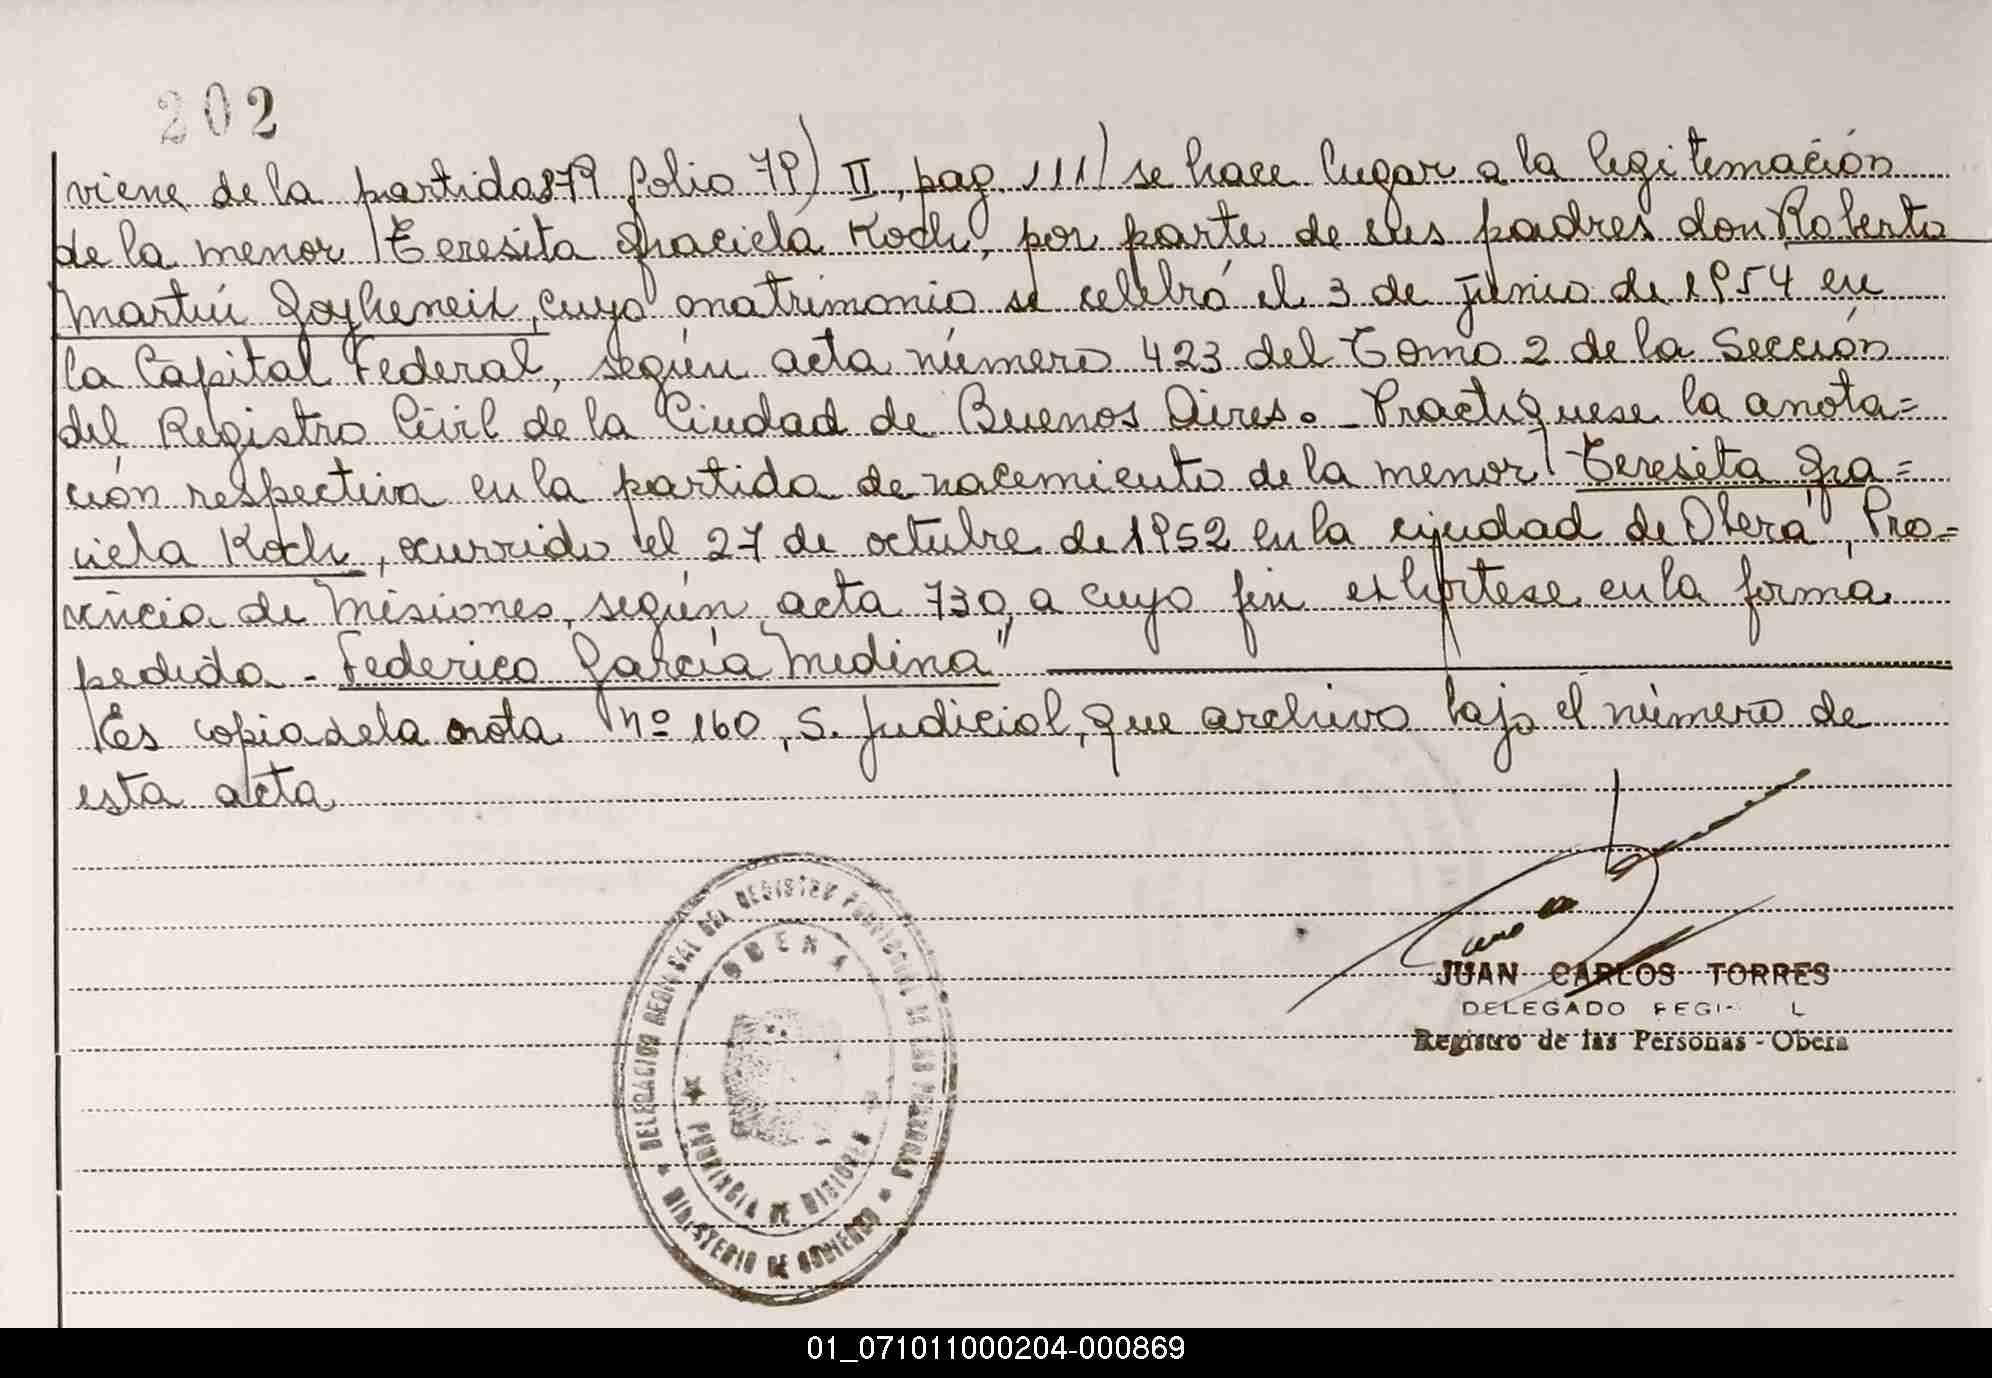 202
viene de la partida 879 folio 79) II, pag. 111) se hace lugar a la legitimación
de la menor Teresita Graciela Koch, por parte de sus padres don Roberto
Martín, cuyo matrimonio se celebró el 3 de junio de 1954 en
la Capital Federal, según acta número 423 del Tomo 2 de la Sección
del Registro Civil de la Ciudad de Buenos Aires. - Practíquese la anota=
ción respectiva en la partida de nacemiento de la menor Teresita Gra=
ciela Koch, ocurrido el 27 de octubre de 1952 en la ciudad de Oberá, Pro=
vincia de Misiones, según acta 730, a cuyo fin exhórtese en la forma
pedida - Federico García Medina"
Es copia de la nota nº 160, S. Judicial, que archivo bajo el número de
esta acta
DELEGACION REGIONAL DEL REGISTRO PROVINCIAL DE LAS PERSONAS
OBERA
PROVINCIA DE MISIONES
MINISTERIO DE GOBIERNO
JUAN CARLOS TORRES
DELEGADO REGI L
Registro de las Personas - Obera
01_071011000204-000869